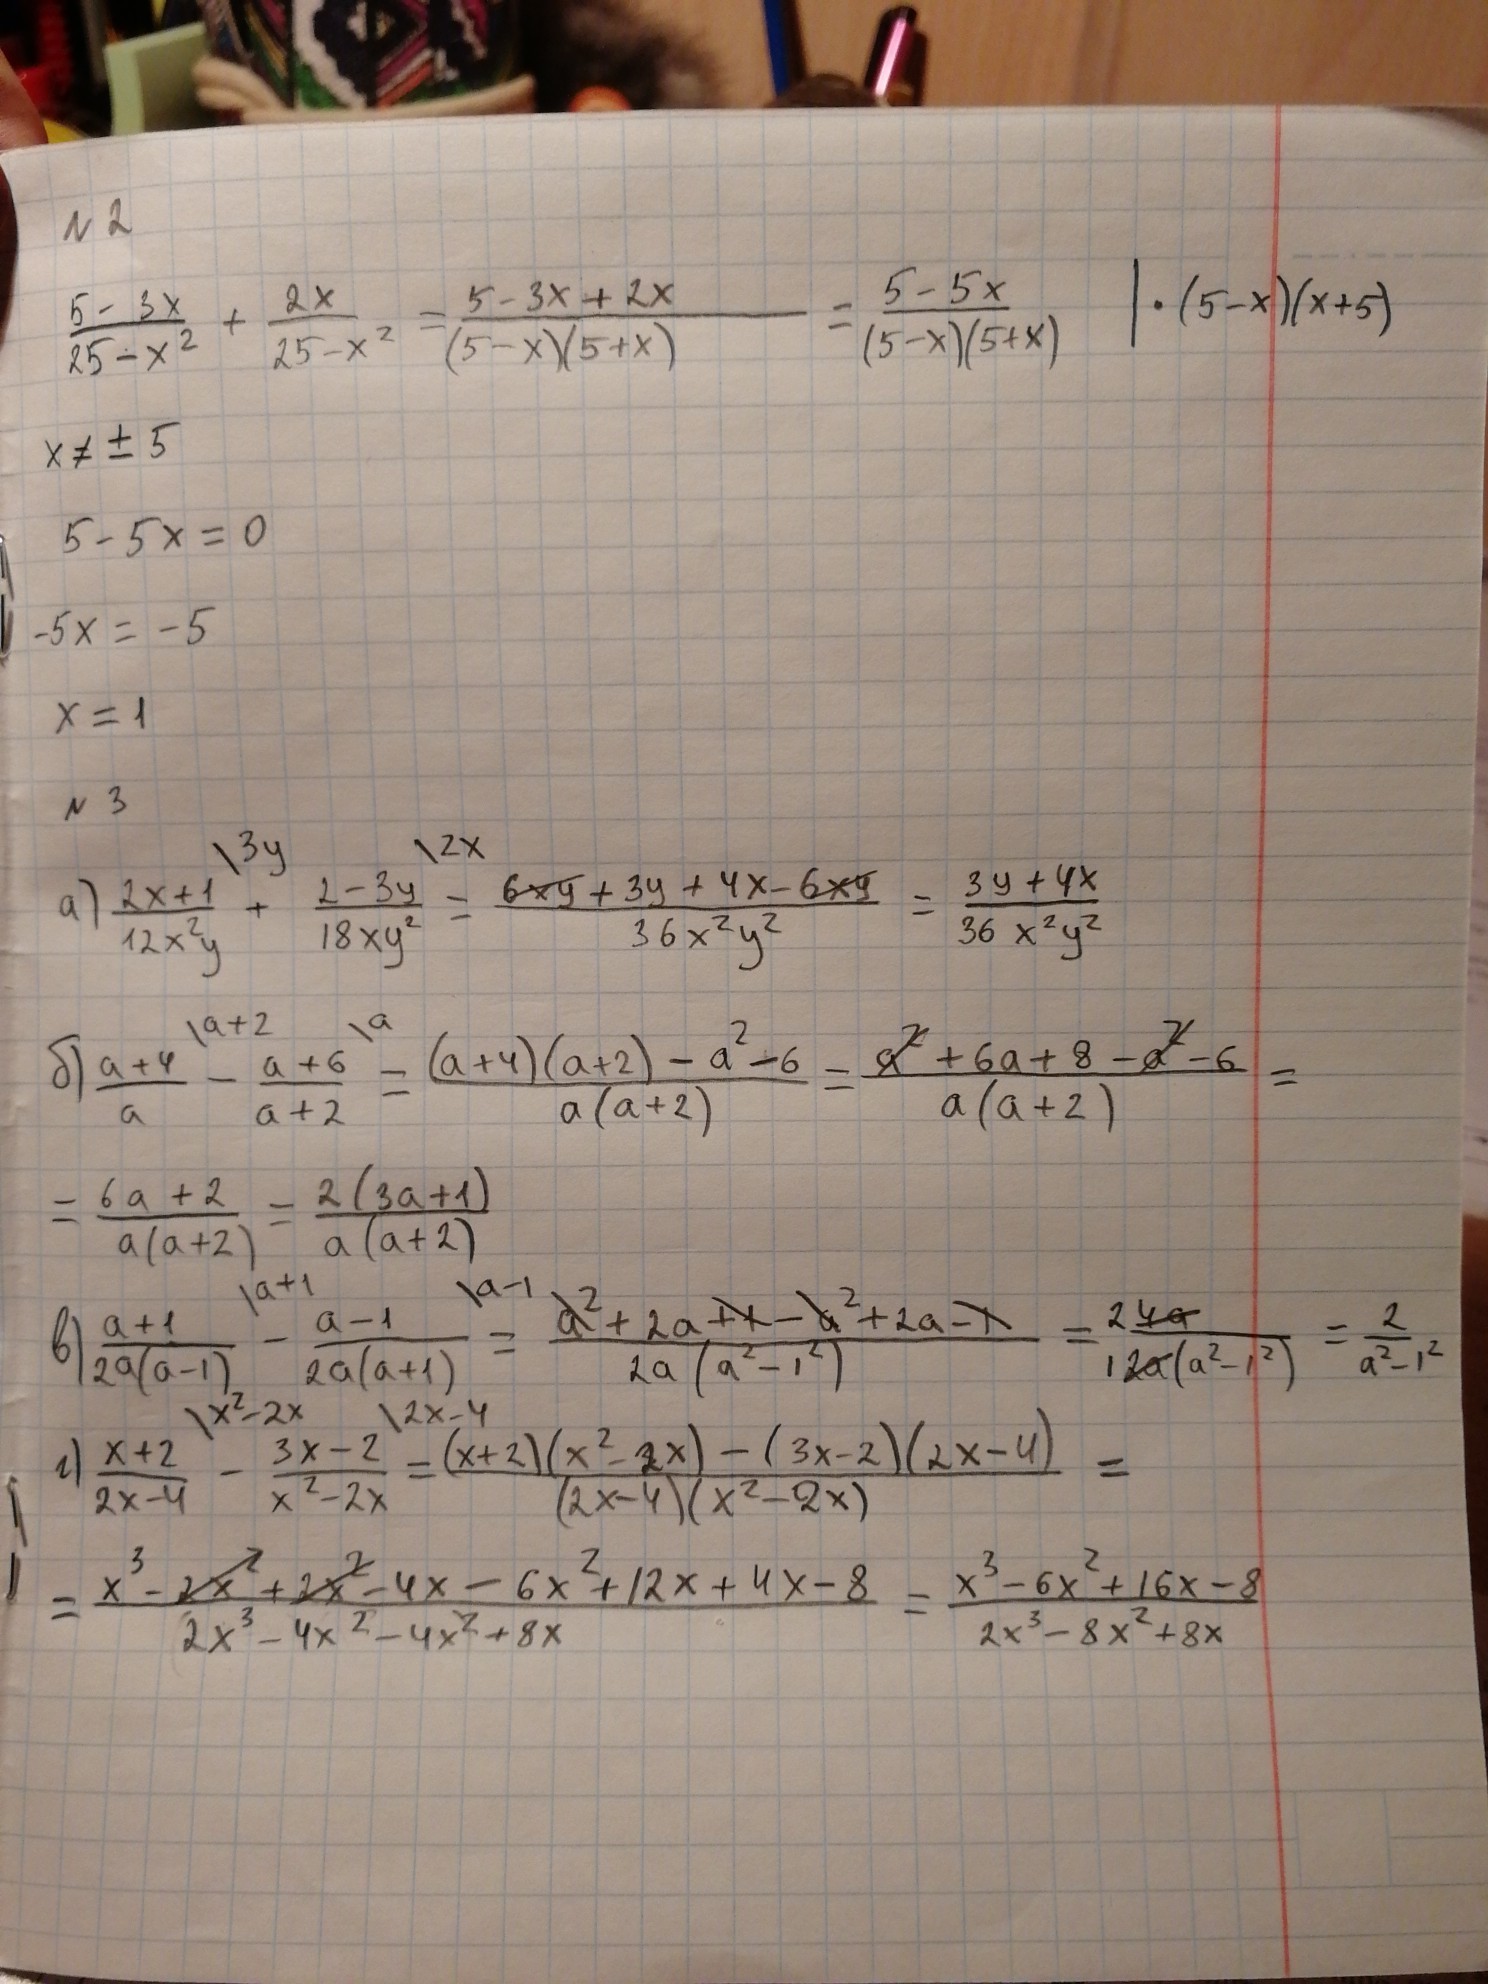 N 2
(5 - 3x)/(25 - x²) + 2x/(25 - x²) = (5 - 3x + 2x)/((5 - x)(5 + x)) = (5 - 5x)/((5 - x)(5 + x)) | · (5 - x)(x + 5)
x ≠ ± 5
5 - 5x = 0
-5x = -5
x = 1
N 3
а) (2x + 1)/(12x²y) \3y + (2 - 3y)/(18xy²) \2x = (6xy + 3y + 4x - 6xy)/(36x²y²) = (3y + 4x)/(36x²y²)
б) (a + 4)/a \a+2 - (a + 6)/(a + 2) \a = ((a + 4)(a + 2) - a² - 6)/(a(a + 2)) = (a² + 6a + 8 - a² - 6)/(a(a + 2)) =
= (6a + 2)/(a(a + 2)) = 2(3a + 1)/(a(a + 2))
в) (a + 1)/(2a(a - 1)) \a+1 - (a - 1)/(2a(a + 1)) \a-1 = (a² + 2a + 1 - a² + 2a - 1)/(2a(a² - 1²)) = 2 4a/(1 2a(a² - 1²)) = 2/(a² - 1²)
г) (x + 2)/(2x - 4) \x²-2x - (3x - 2)/(x² - 2x) \2x-4 = ((x + 2)(x² - 2x) - (3x - 2)(2x - 4))/((2x - 4)(x² - 2x)) =
= (x³ - 2x² + 2x² - 4x - 6x² + 12x + 4x - 8)/(2x³ - 4x² - 4x² + 8x) = (x³ - 6x² + 16x - 8)/(2x³ - 8x² + 8x)